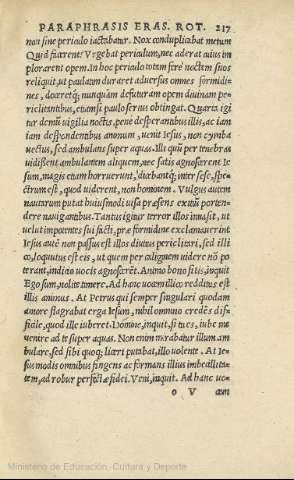 PARAPHRASIS ERAS. ROT. 217
non sine periculo iactabatur. Nox conduplicabat metum
Quid facerent? Vrgebat periculum, nec aderat cuius im
plorarent opem. In hoc periculo totam fere noctem sinos
reliquit, ut paulatim duraret aduersus omnes formidi-
nes, doceretq; nunquam defuturam opem diuinam pe-
riclitantibus, etiamsi paulo serius obtingat. Quarta igi
tur demũ uigilia noctis, pene desperantibus illis, ac iam
iam despondentibus animum, uenit Iesus, non cymba
uectus, sed ambulans super aquas. Illi quũ per tenebras
uidissent ambulantem aliquem, nec satis agnoscerent Ie
sum, magis etiam horruerunt, dicebantq; inter sese, spe-
ctrum est, quod uiderent, non hominem. Vulgus autem
nautarum putat huiusmodi uisa præsens exitiũ porten-
dere nauigantibus. Tantus igitur terror illos inuasit, ut
uelut impotentes sui facti, præ formidine exclamauerint
Iesus autẽ non passus est illos diutius periclitari, sed illi
co, loquutus est eis, ut quem per caliginem uidere nõ po
terant, indicio uocis agnoscerẽt. Animo bono sitis, inquit
Ego sum, nolite timere. Ad hanc uocem illico redditus est
illis animus. At Petrus qui semper singulari quodam
amore flagrabat erga Iesum, nihil omnino credẽs diffi-
ciale, quod ille iuberet: Domine, inquit, si tu es, iube me
uenire ad te super aquas. Non enim mirabatur illum am
bulare, sed sibi quoq; licere putabat, illo uolente. At Ie-
sus modis omnibus fingens ac formans illius imbecillita-
tem, ad robur perfectæ fidei. Veni, inquit. Ad hanc uo-
o V cem
Ministerio de Educación, Cultura y Deporte